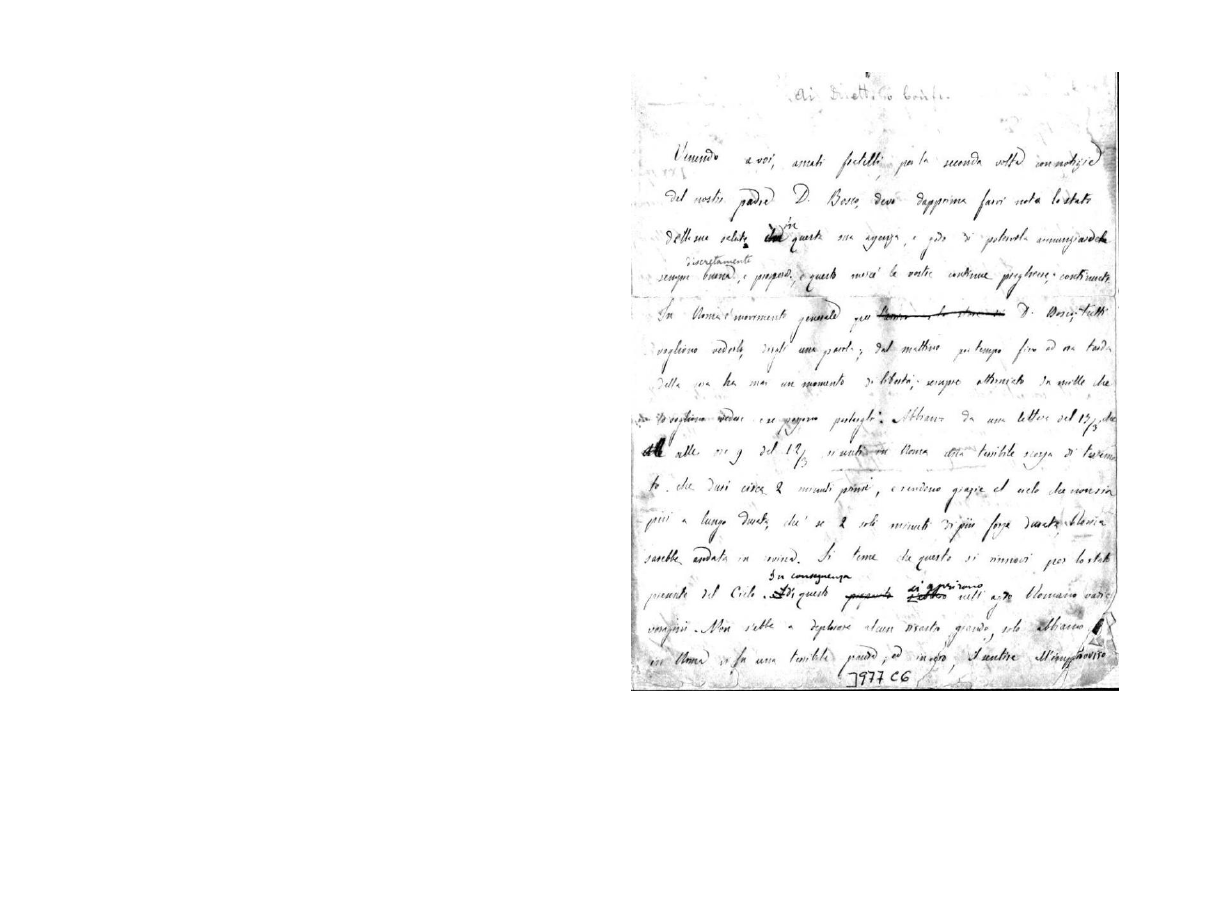 Ai
Venendo a voi, amati fratelli, per la seconda volta con notizie
del nostro padre D. Bosco, devo dapprima farvi nota lo stato
della sua salute in questa sua e godo di potervela
discretamente
sempre buona, e questo mercè le vostre continue preghiere; continuate.
In Roma è movimento generale per D. Bosco; tutti
vogliono vederlo, dirgli una parola; dal mattino per tempo fino ad ora tarda
della sera ha mai un momento di libertà; sempre attorniato da quelli che
vogliono vedere Abbiamo da una lettera del 13/3 che
alle ore 9 del 12/3 si sentì in Roma una terribile scossa di
to. che durò circa 2 minuti primi, e rendono grazie al cielo che non sia
più a lungo durata, chè se 2 soli minuti di più fosse durata, Roma
sarebbe andata in rovina. Si teme che questo si rinnovi per lo stato
In conseguenza
presente del Cielo. di questo si aprirono nell' agro Romano varie
voragini. Non s'ebbe a deplorare alcun disastro grande, solo
in Roma vi fu una terribile paura, ed in vero, il sentire all'improvviso
3977 C6